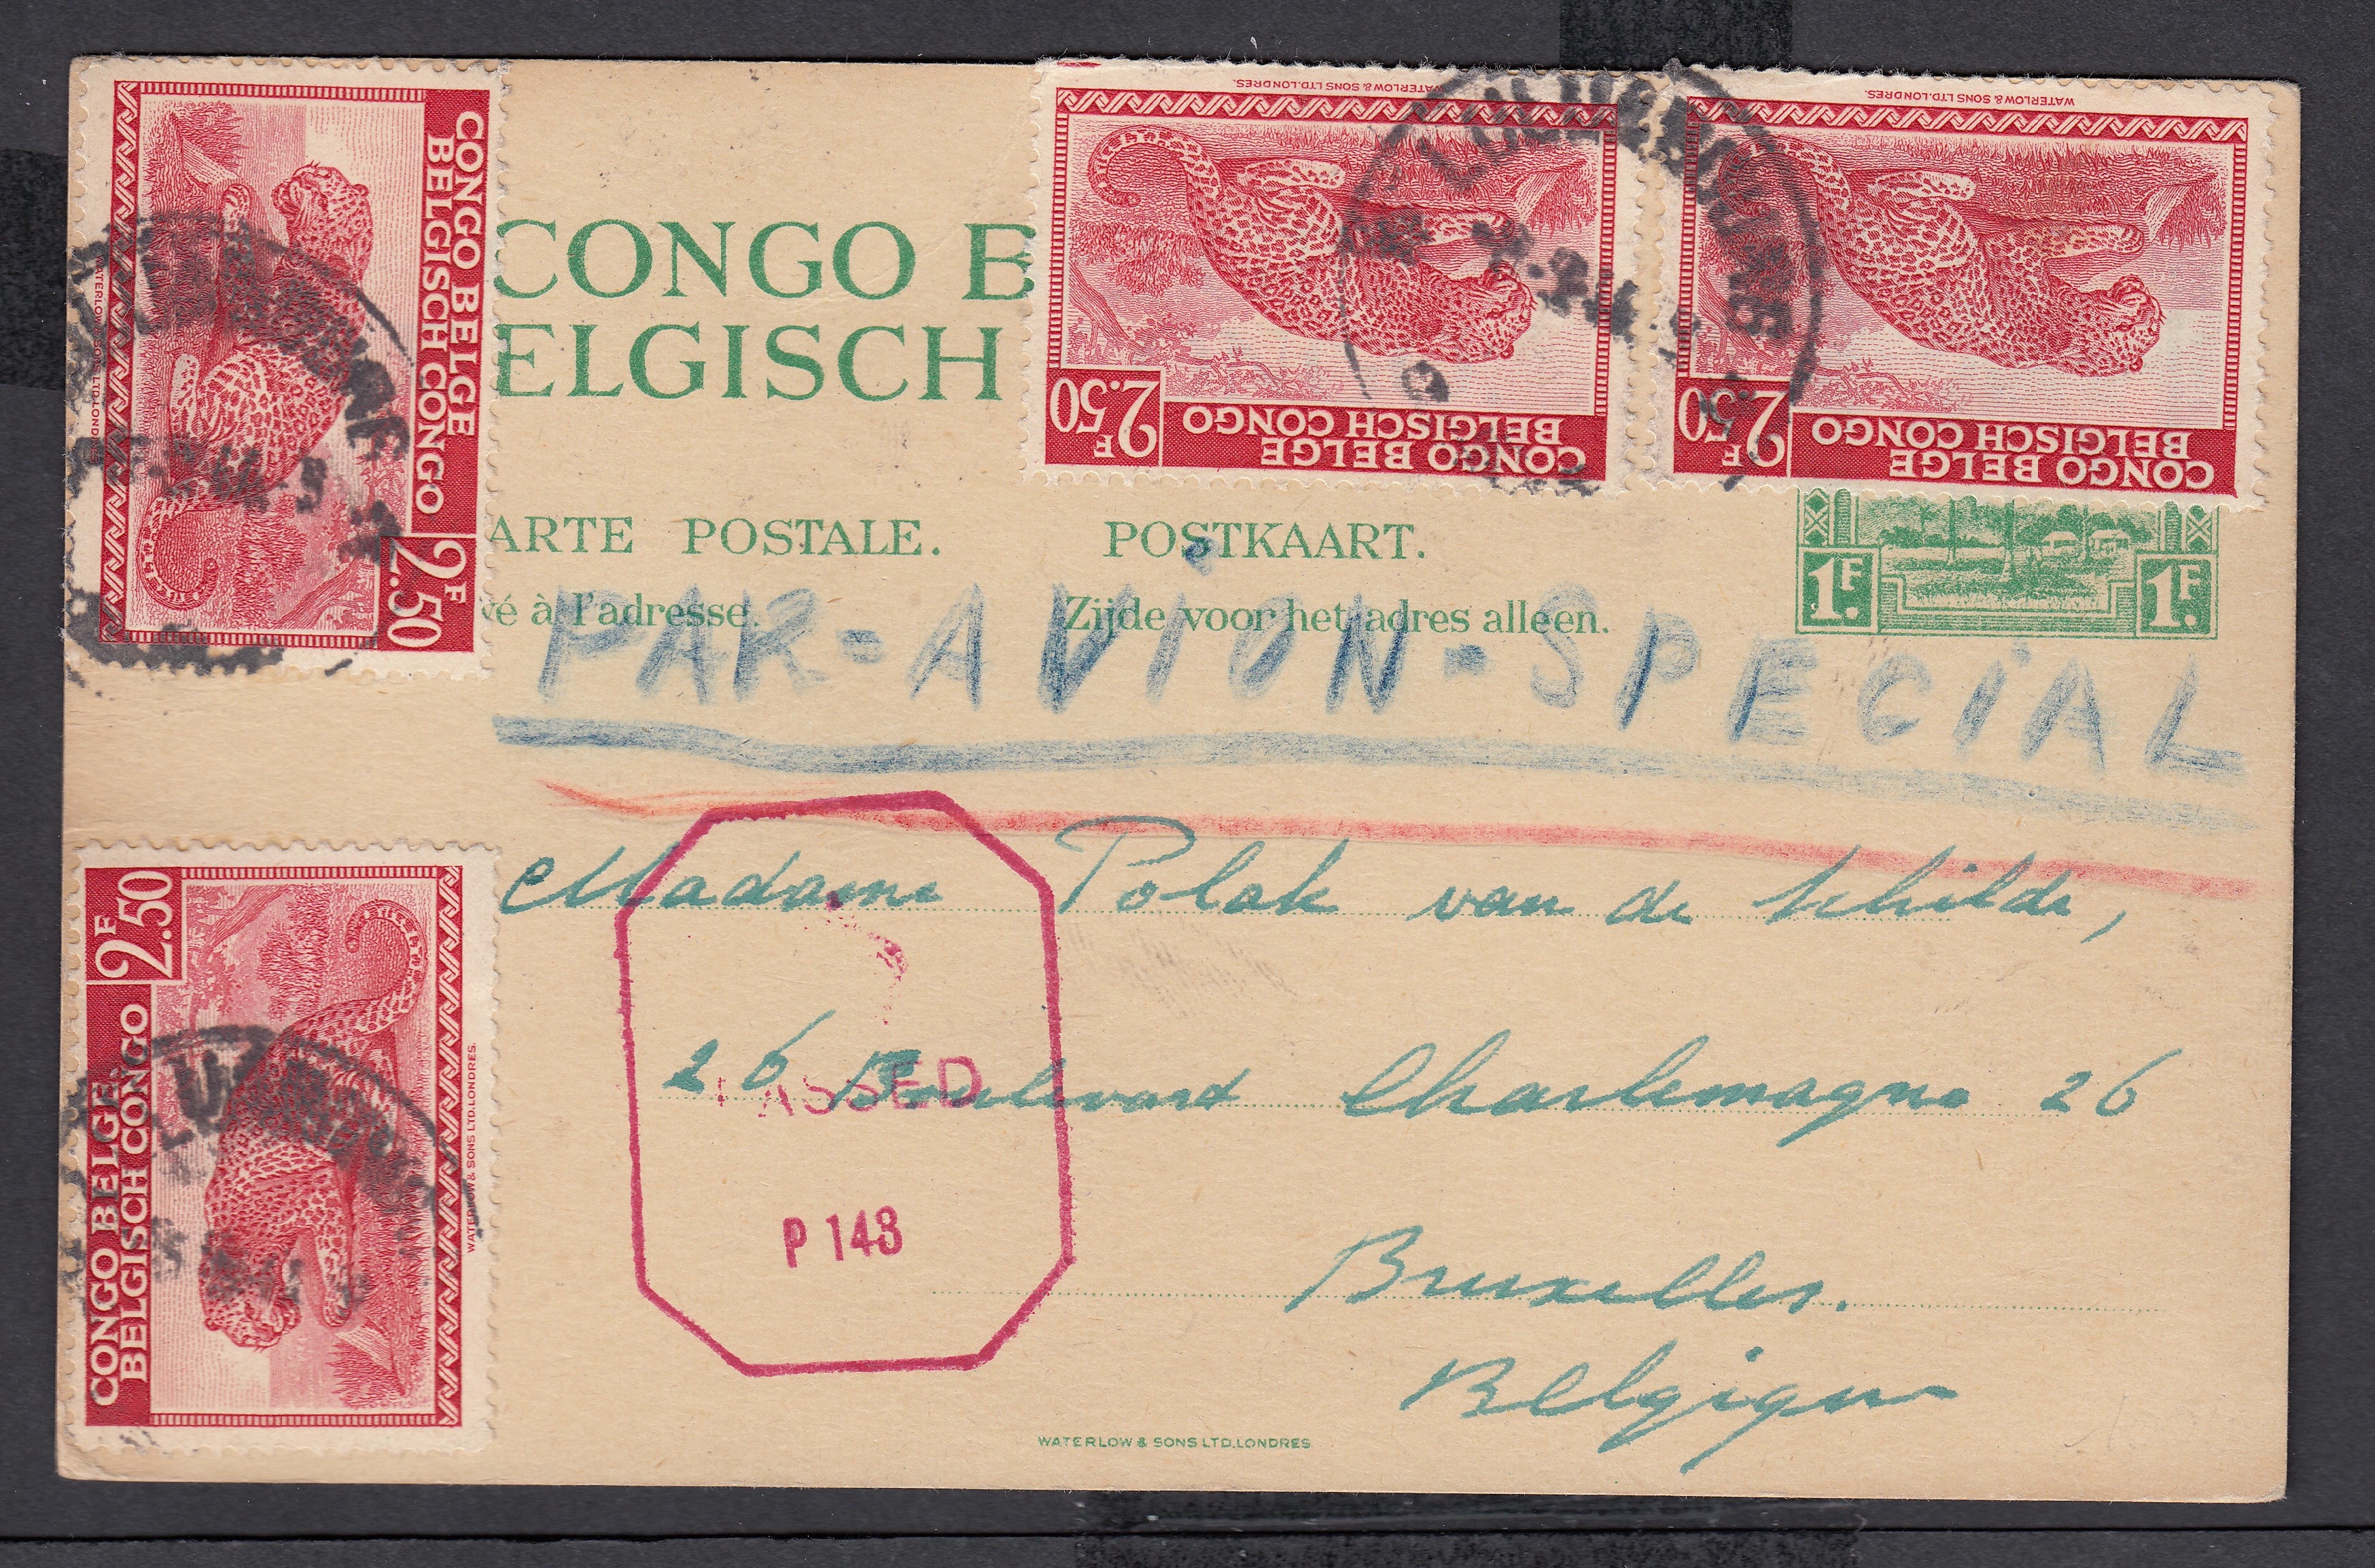 CONGO BELGE
BELGISCH CONGO
2F
2.50
WATERLOW & SONS LTD. LONDRES.
WATERLOW & SONS LTD. LONDRES.
CONGO BELGE
BELGISCH CONGO
2F
2.50
WATERLOW & SONS LTD. LONDRES.
CONGO BELGE
BELGISCH CONGO
2F
2.50
CONGO B
ELGISCH
ARTE POSTALE. POSTKAART.
vé à l'adresse. Zijde voor het adres alleen.
1F. 1F.
PAR-AVION-SPECIAL
Madame Polak van de Schilde,
26 Boulevard Charlemagne 26
Bruxelles.
Belgique
PASSED
P 143
2F
2.50
CONGO BELGE
BELGISCH CONGO
WATERLOW & SONS LTD. LONDRES.
WATERLOW & SONS LTD. LONDRES